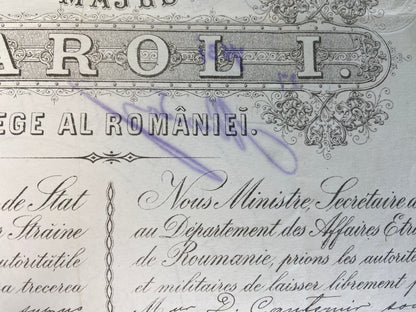 MAJES
AROL I.
EGE AL ROMÂNIEĬ.
de Stat
Străine
autoritățile
a trecerea
Nous Ministre, Secrétaire d
au Département des Affaires Etr
de Roumanie, prions les autorité
et militaires de laisser librement p
D. Cantemir